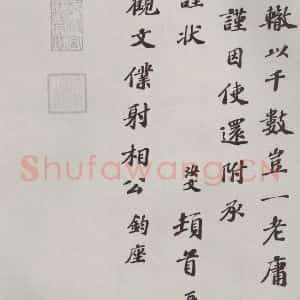 轍以千數豈一老庸
謹因使還附承
頓首
謹状
觀文僕射相公 鈞座
ShufaWang.CN